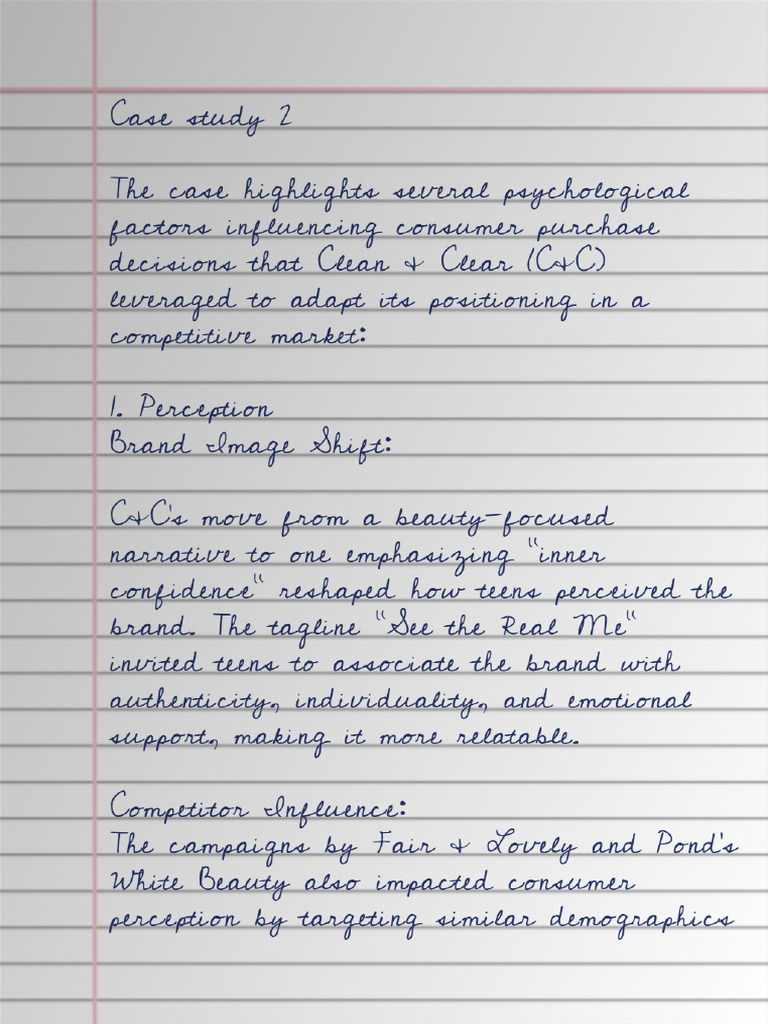 Case study 2
The case highlights several psychological
factors influencing consumer purchase
decisions that Clean & Clear (C&C)
leveraged to adapt its positioning in a
competitive market:
1. Perception
Brand Image Shift:
C&C's move from a beauty-focused
narrative to one emphasizing "inner
confidence" reshaped how teens perceived the
brand. The tagline "See the Real Me"
invited teens to associate the brand with
authenticity, individuality, and emotional
support, making it more relatable.
Competitor Influence:
The campaigns by Fair & Lovely and Pond's
White Beauty also impacted consumer
perception by targeting similar demographics